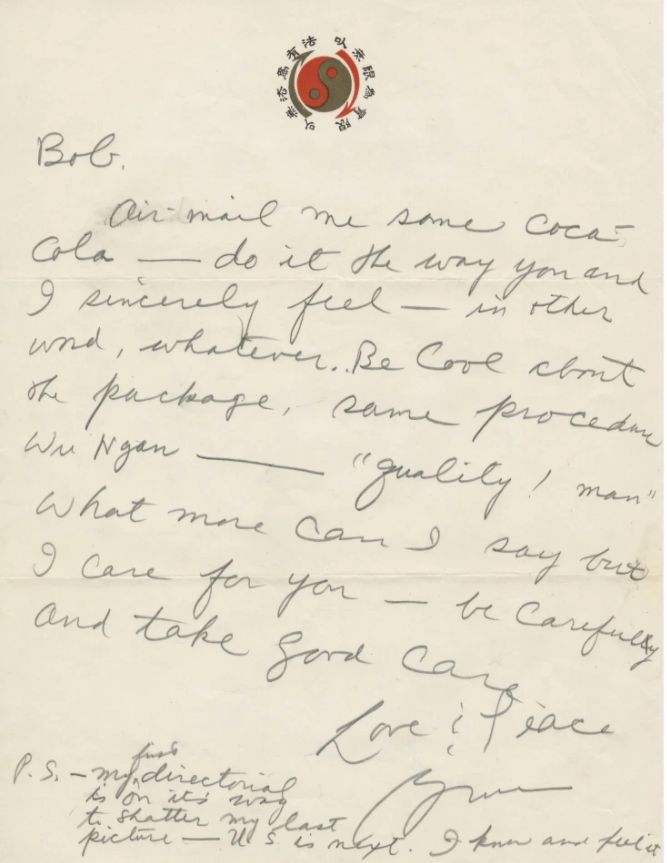 以無法為有法
以無限為有限
Bob.
Air-mail me some Coca-
Cola — do it the way you and
I sincerely feel — in other
word, whatever.. Be Cool about
the package, same procedure
Wu Ngan — "quality! man"
What more can I say but
I care for you — be Carefully
and take good care
Love & Peace
Bruce
P.S. — my first directorial
is on it's way
to shatter my last
picture — U.S. is next. I know and feel it